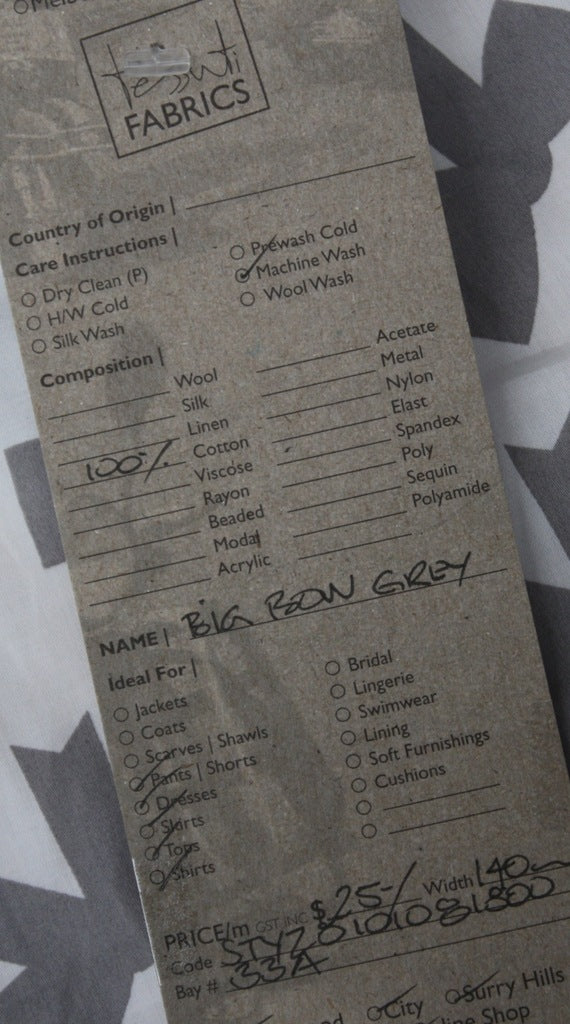 tessuti
FABRICS
Country of Origin |
Care Instructions |
Dry Clean (P)
H/W Cold
Silk Wash
Prewash Cold
Machine Wash
Wool Wash
Composition |
Wool
Silk
Linen
100% Cotton
Viscose
Rayon
Beaded
Modal
Acrylic
Acetate
Metal
Nylon
Elast
Spandex
Poly
Sequin
Polyamide
NAME | BIG BOW GREY
Ideal For |
Jackets
Coats
Scarves | Shawls
Pants | Shorts
Dresses
Skirts
Tops
Shirts
Bridal
Lingerie
Swimwear
Lining
Soft Furnishings
Cushions
PRICE/m GST INC $25-/ Width 140
Code STYZ0101081800
Bay # 33A
City Surry Hills
Shop